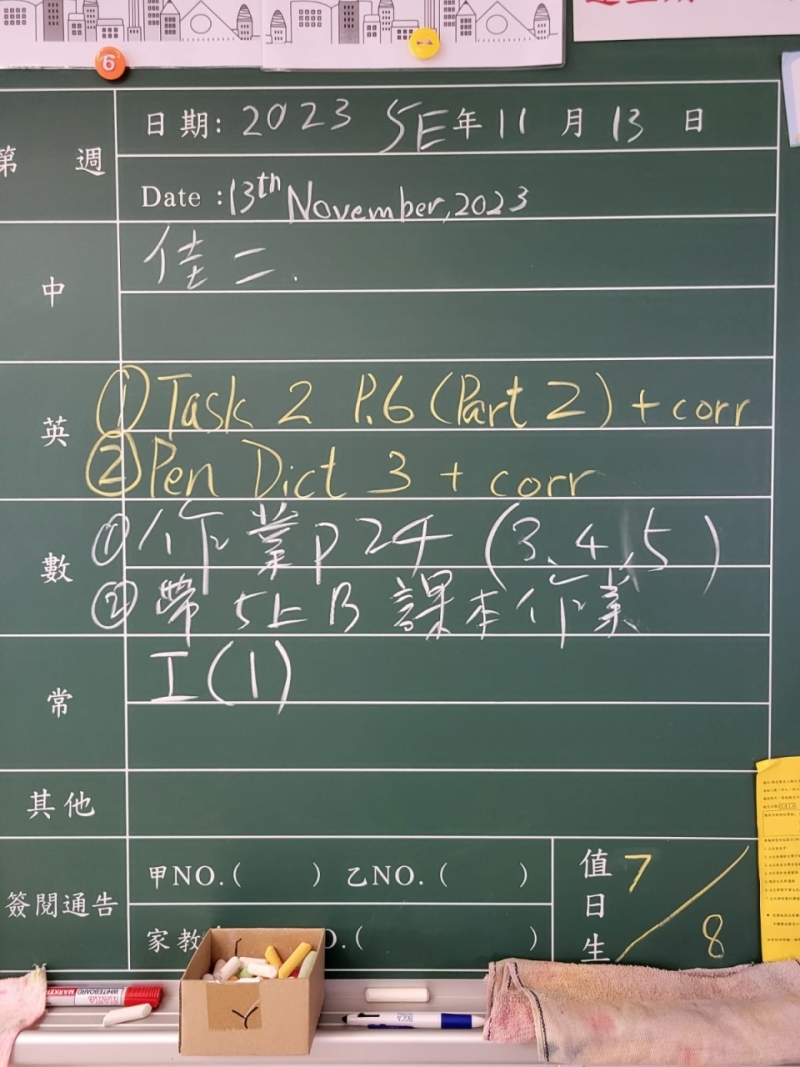 6
第 週
日期: 2023 5E 年 11 月 13 日
Date : 13th November, 2023
中
佳二.
英
① Task 2 P.6 (Part 2) + corr
② Pen Dict 3 + corr
數
① 作業 p 24 (3、4、5)
② 帶 5上B 課本作業
常
I(1)
其他
簽閱通告
甲NO.( ) 乙NO.( )
家教 O.( )
值日生 7/8
WHITEBOARD MARKER